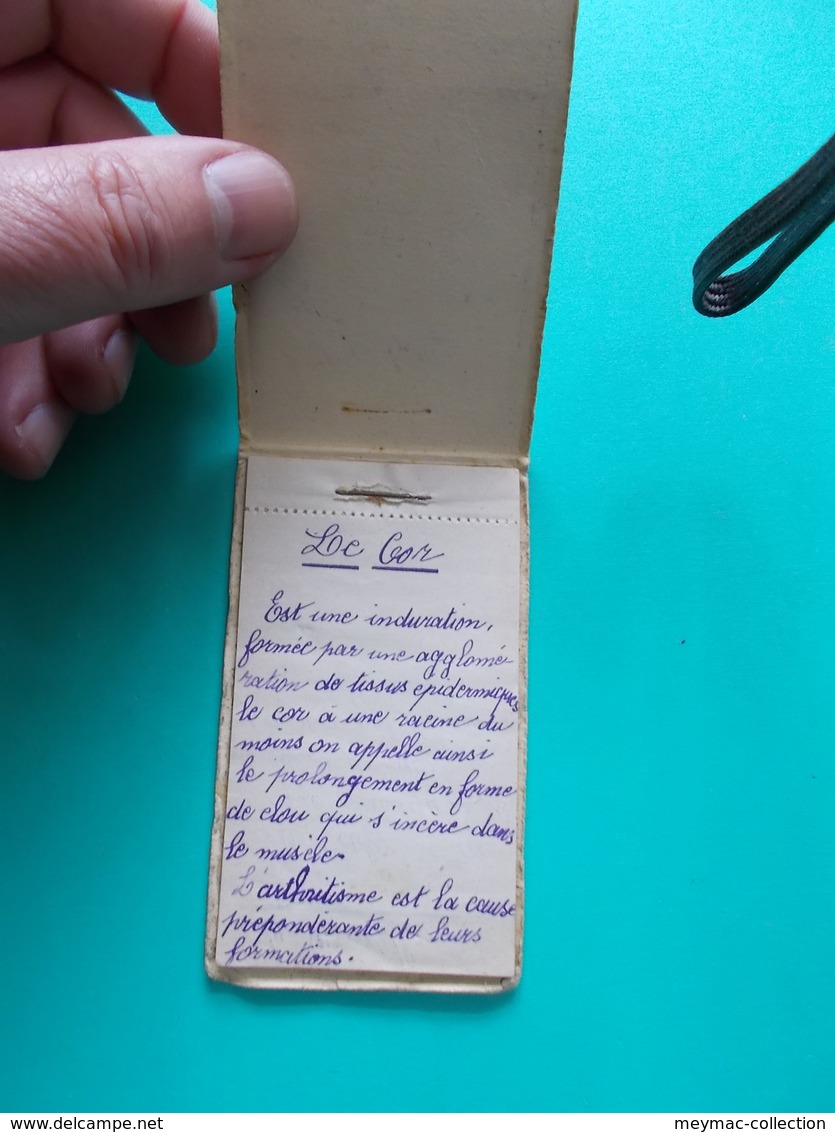 Le Cor
Est une induration,
formée par une agglomé-
ration de tissus épidermiques
le cor à une racine du
moins on appelle ainsi
le prolongement en forme
de clou qui s'incère dans
le muscle.
L'arthritisme est la cause
prépondérante de leurs
formations.
delcampe.net
meymac-collection